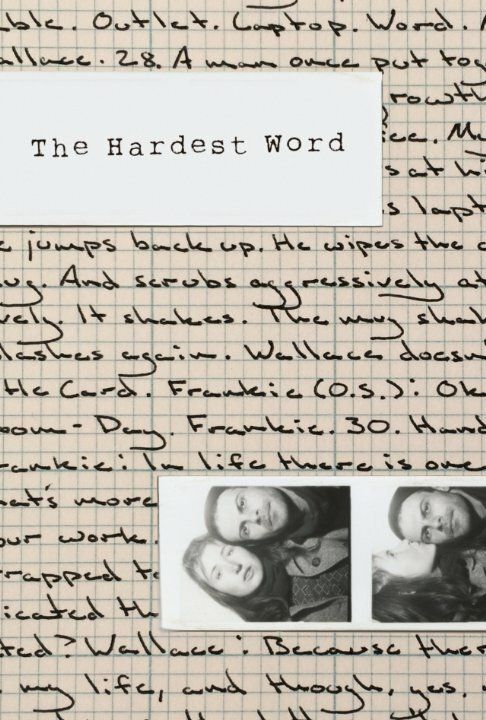 ble. Outlet. Laptop. Word.
allace. 28. A man once put tog
rowth
The Hardest Word
ice.
sat hi
s lapt
e jumps back up. He wipes the
ug. And scrubs aggressively at
vely. It shakes. The mug shak
lashes again. Wallace doesn
tle Card. Frankie (O.S.): Ok
oom - Day. Frankie. 30. Hand
rankie: In life there is one
hat's more
our work.
rapped to
icated th
ted? Wallace: Because ther
my life, and though, yes,